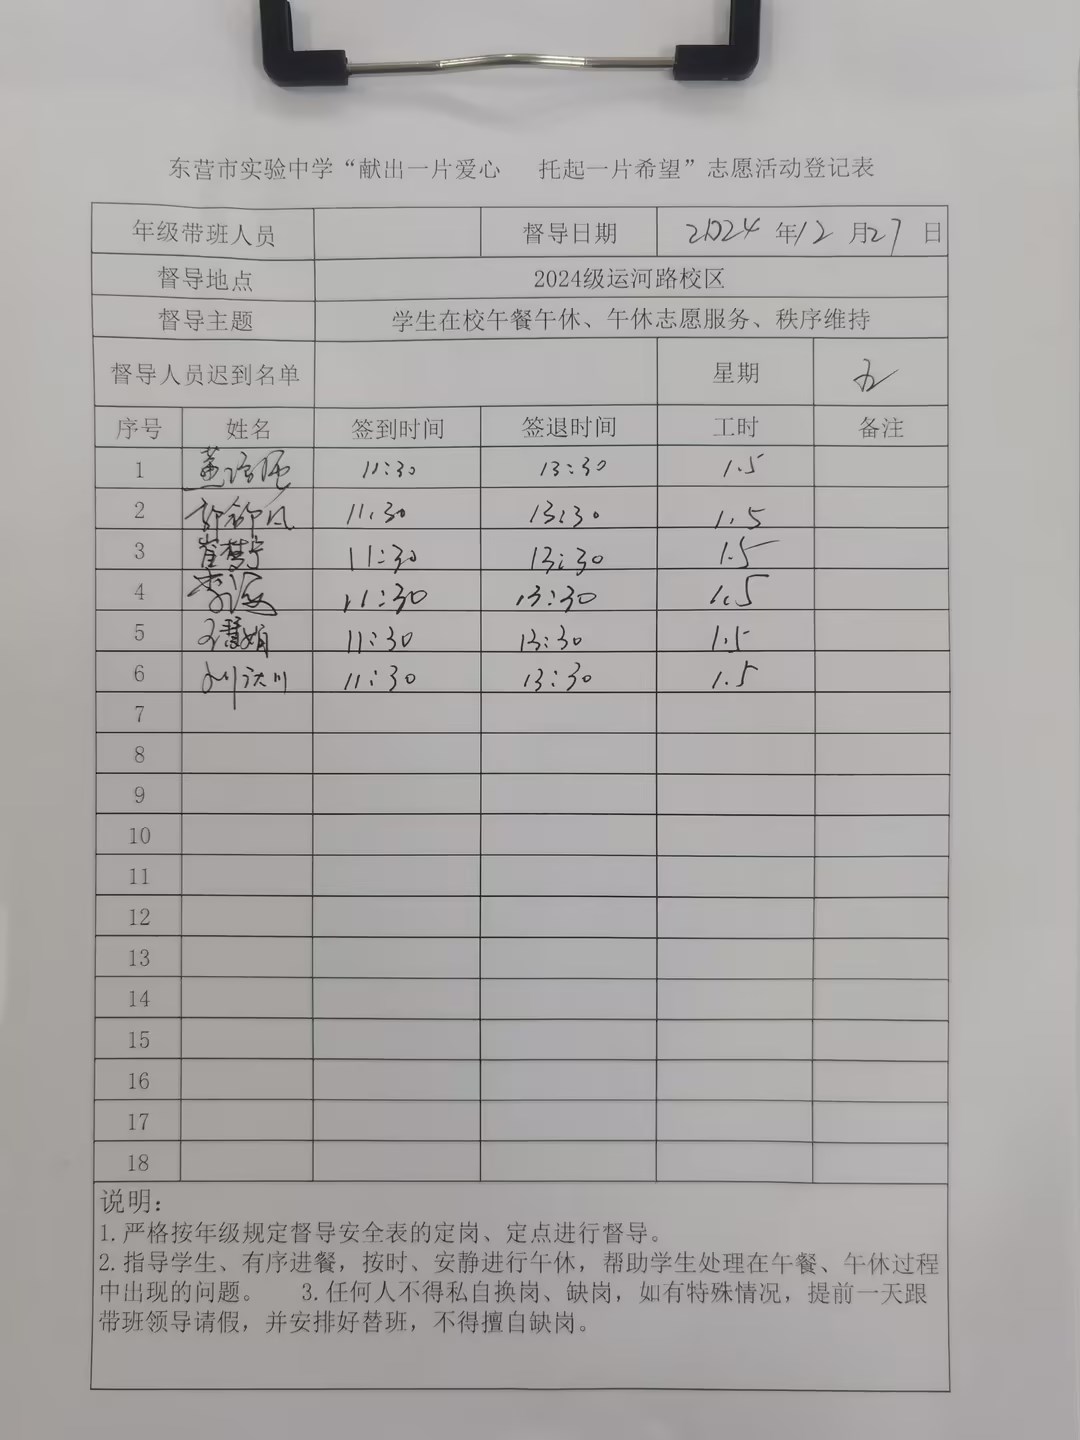 东营市实验中学“献出一片爱心 托起一片希望”志愿活动登记表
年级带班人员 督导日期 2024 年 12 月 27 日
督导地点 2024级运河路校区
督导主题 学生在校午餐午休、午休志愿服务、秩序维持
督导人员迟到名单 星期 五
序号 姓名 签到时间 签退时间 工时 备注
1 11:30 13:30 1.5
2 11:30 13:30 1.5
3 崔梦宁 11:30 13:30 1.5
4 李海 11:30 13:30 1.5
5 王慧娟 11:30 13:30 1.5
6 刘汰川 11:30 13:30 1.5
7
8
9
10
11
12
13
14
15
16
17
18
说明：
1.严格按年级规定督导安全表的定岗、定点进行督导。
2.指导学生、有序进餐，按时、安静进行午休，帮助学生处理在午餐、午休过程
中出现的问题。 3.任何人不得私自换岗、缺岗，如有特殊情况，提前一天跟
带班领导请假，并安排好替班，不得擅自缺岗。